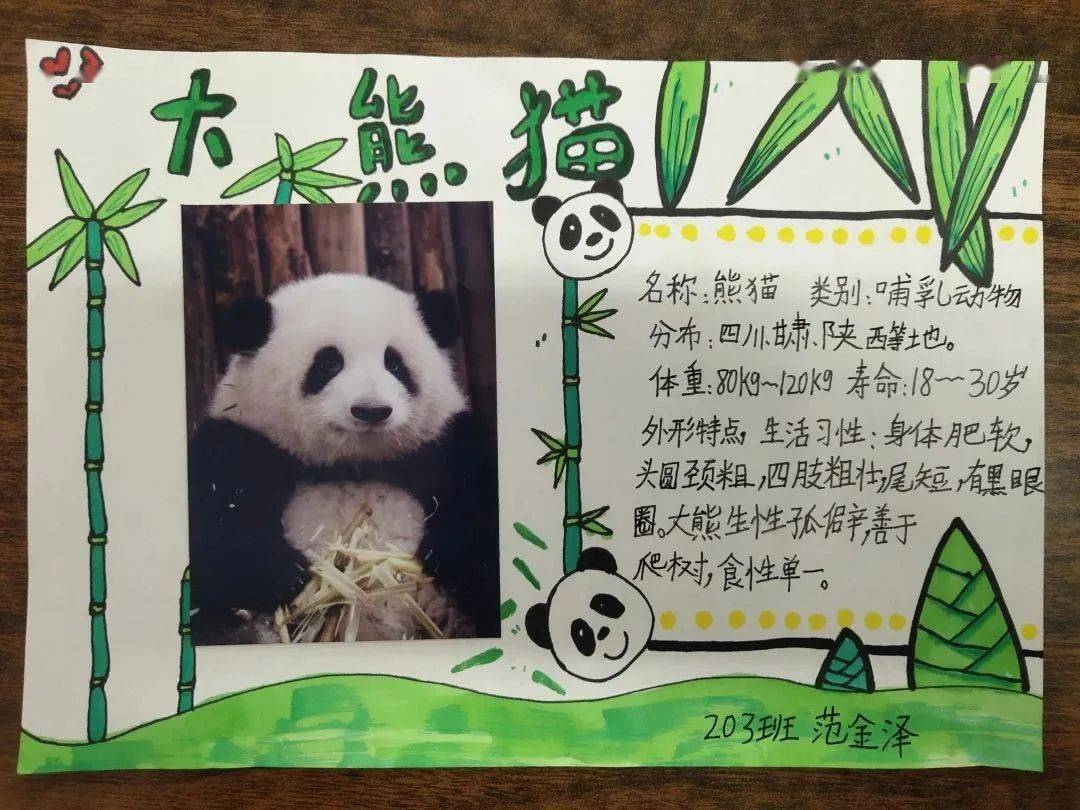 大熊猫
名称:熊猫 类别:哺乳动物
分布:四川、甘肃、陕西等地。
体重:80kg~120kg 寿命:18~30岁
外形特点,生活习性:身体肥软,
头圆颈粗,四肢粗壮,尾短,有黑眼
圈。大熊生性孤僻,善于
爬树,食性单一。
203班 范金泽